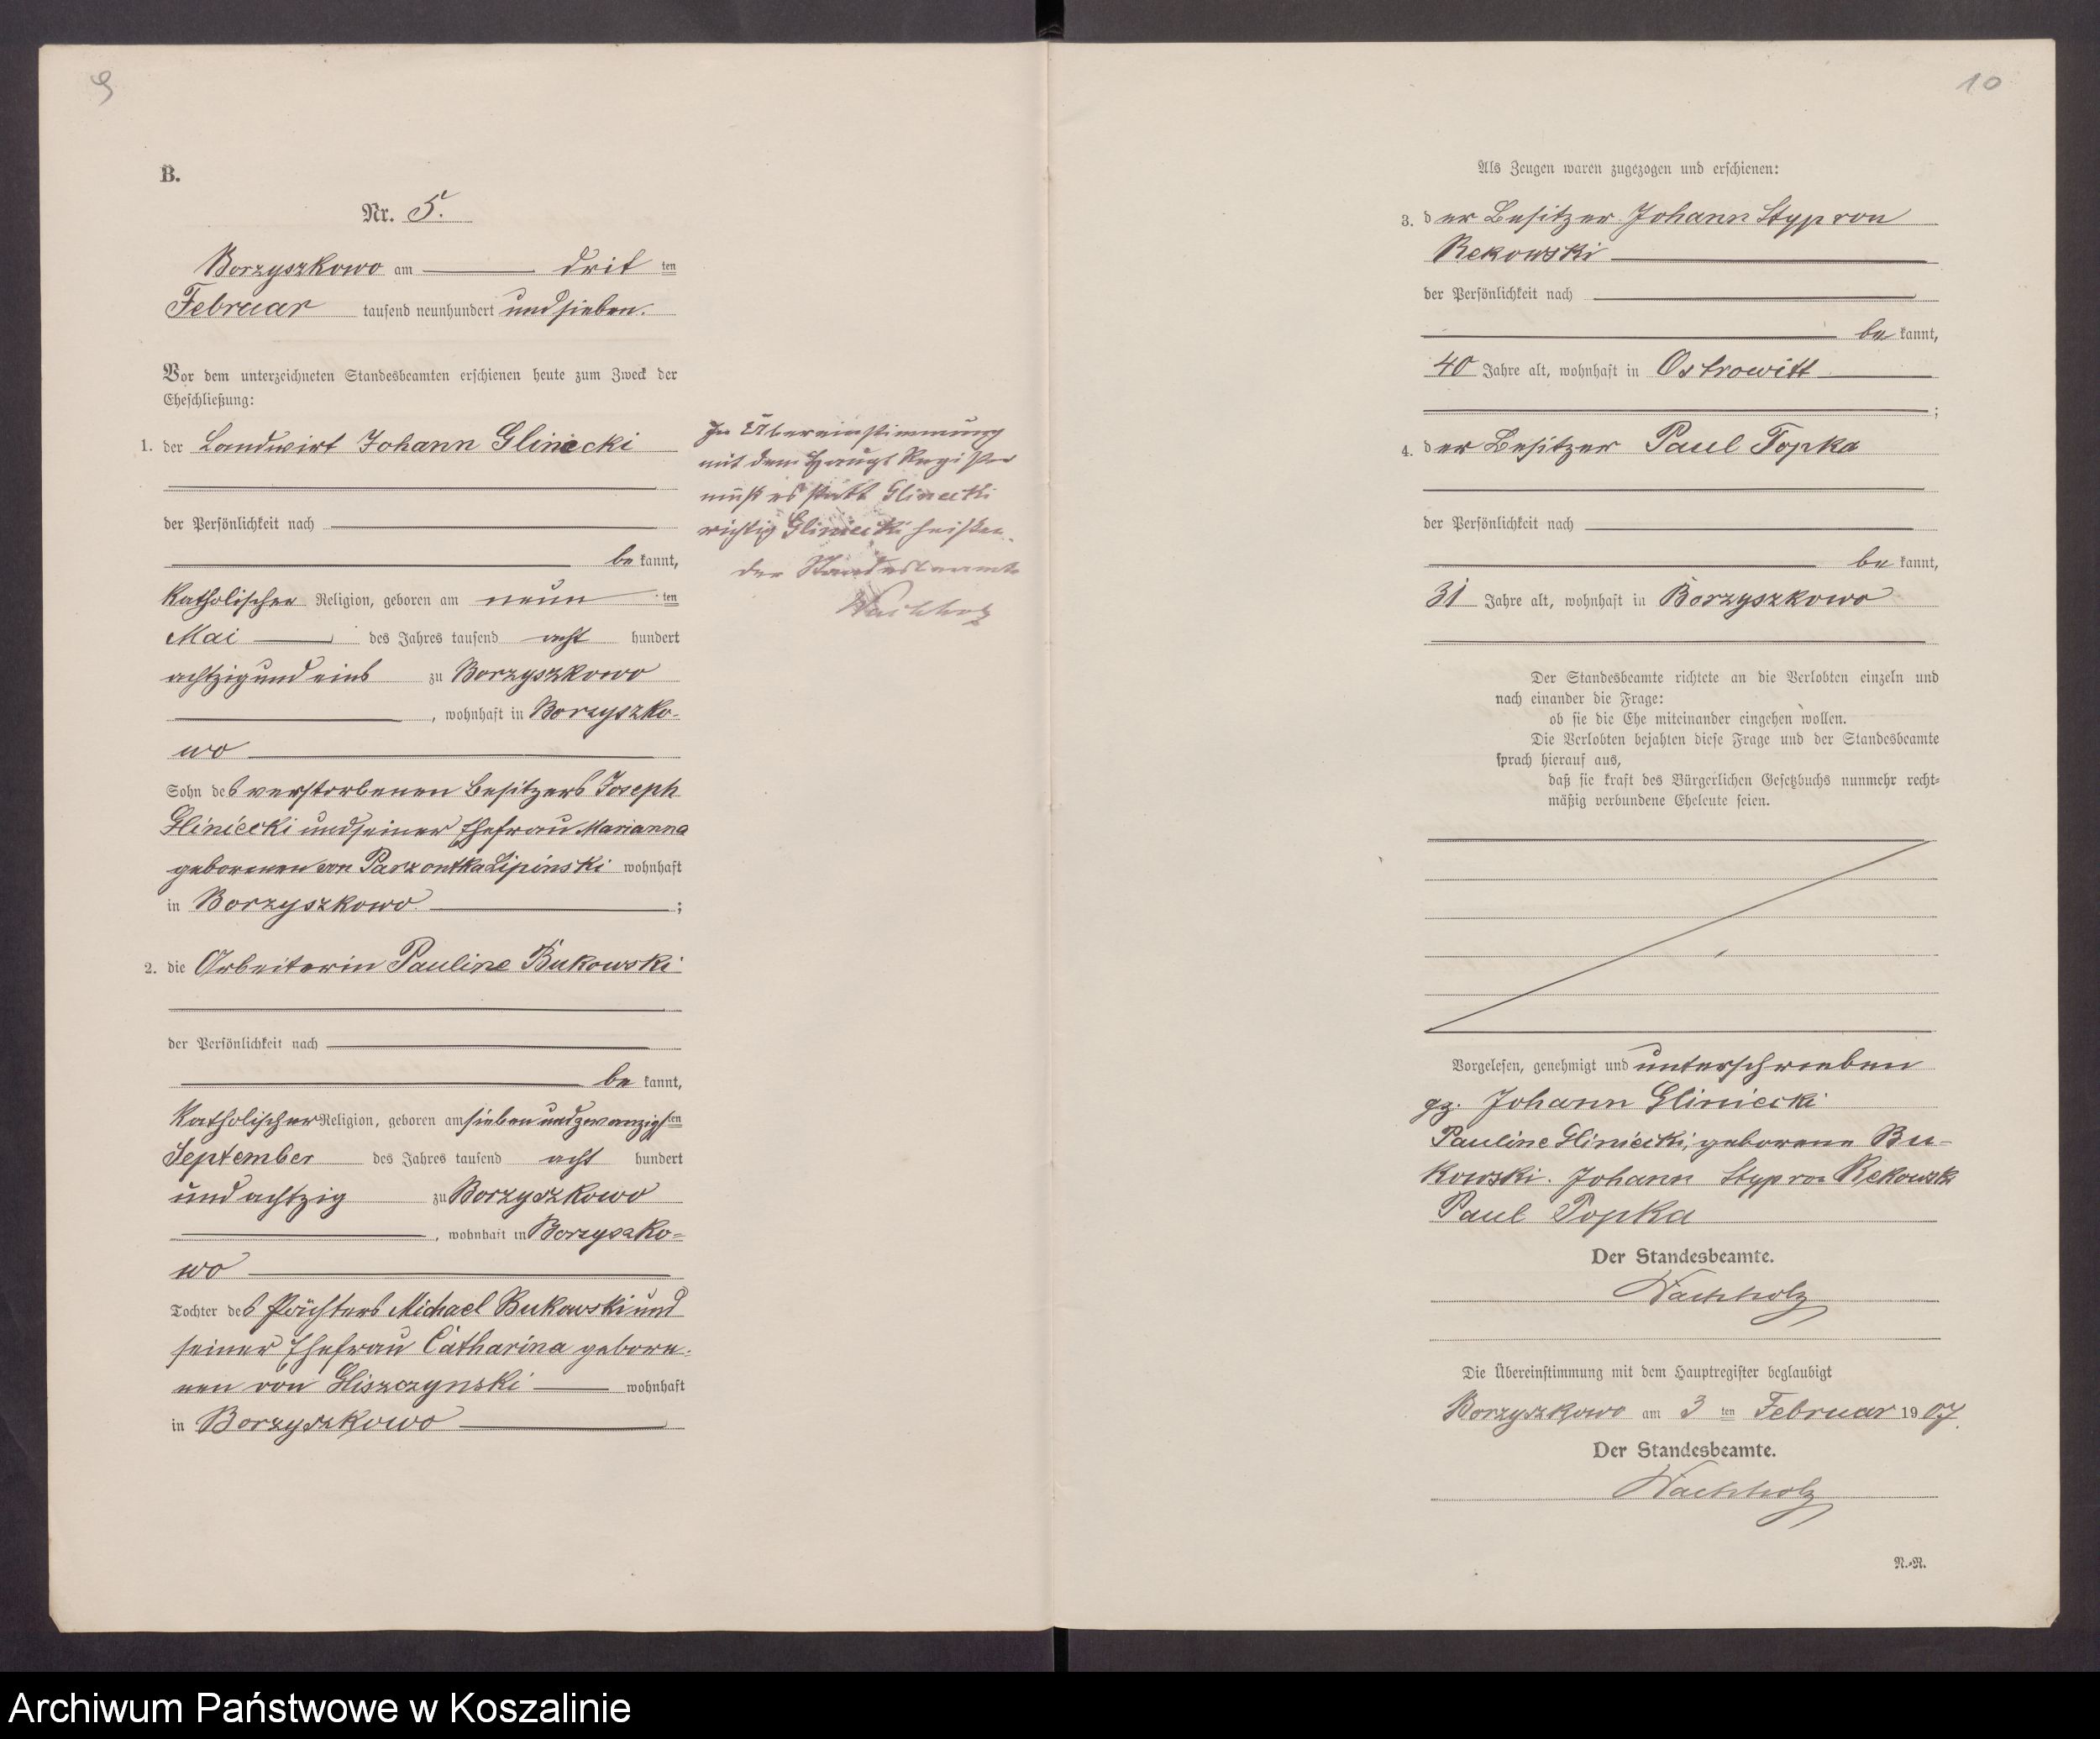 9
B.
Nr. 5.
Borzyszkowo am drit ten
Februar tausend neunhundert und sieben.
Vor dem unterzeichneten Standesbeamten erschienen heute zum Zweck der
Eheschließung:
1. der Landwirt Johann Glinecki
der Persönlichkeit nach
be kannt,
katholischer Religion, geboren am neun ten
Mai des Jahres tausend acht hundert
achtzig und eins zu Borzyszkowo
, wohnhaft in Borzyszko-
wo
Sohn des verstorbenen Besitzers Joseph
Gliniecki und seiner Ehefrau Marianna
geborenen von Parzontka Lipinski wohnhaft
in Borzyszkowo ;
2. die Arbeiterin Pauline Bukowski
der Persönlichkeit nach
be kannt,
katholischer Religion, geboren am sieben und zwanzigsten
September des Jahres tausend acht hundert
und achtzig zu Borzyszkowo
, wohnhaft in Borzyszko=
wo
Tochter des Pächters Michael Bukowski und
seiner Ehefrau Catharina gebore-
nen von Gliszczynski wohnhaft
in Borzyszkowo
In Übereinstimmung
mit dem Haupt Register
muß es statt Glinecki
richtig Gliniecki heißen.
der Standesbeamte
Wachholz
10
Als Zeugen waren zugezogen und erschienen:
3. der Besitzer Johann Styp von
Rekowski
der Persönlichkeit nach
be kannt,
40 Jahre alt, wohnhaft in Ostrowitt
;
4. der Besitzer Paul Topka
der Persönlichkeit nach
be kannt,
31 Jahre alt, wohnhaft in Borzyszkowo
Der Standesbeamte richtete an die Verlobten einzeln und
nach einander die Frage:
ob sie die Ehe miteinander eingehen wollen.
Die Verlobten bejahten diese Frage und der Standesbeamte
sprach hierauf aus,
daß sie kraft des Bürgerlichen Gesetzbuchs nunmehr recht=
mäßig verbundene Eheleute seien.
Vorgelesen, genehmigt und unterschrieben
gz. Johann Gliniecki
Pauline Gliniecki, geborene Bu-
kowski. Johann Styp von Rekowski
Paul Topka
Der Standesbeamte.
Wachholz
Die Übereinstimmung mit dem Hauptregister beglaubigt
Borzyszkowo am 3 ten Februar 1907.
Der Standesbeamte.
Wachholz
N.=R.
Archiwum Państwowe w Koszalinie